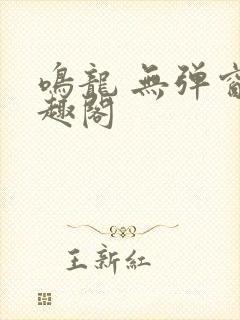 鳴龍 無弹窗
趣閣
王新紅